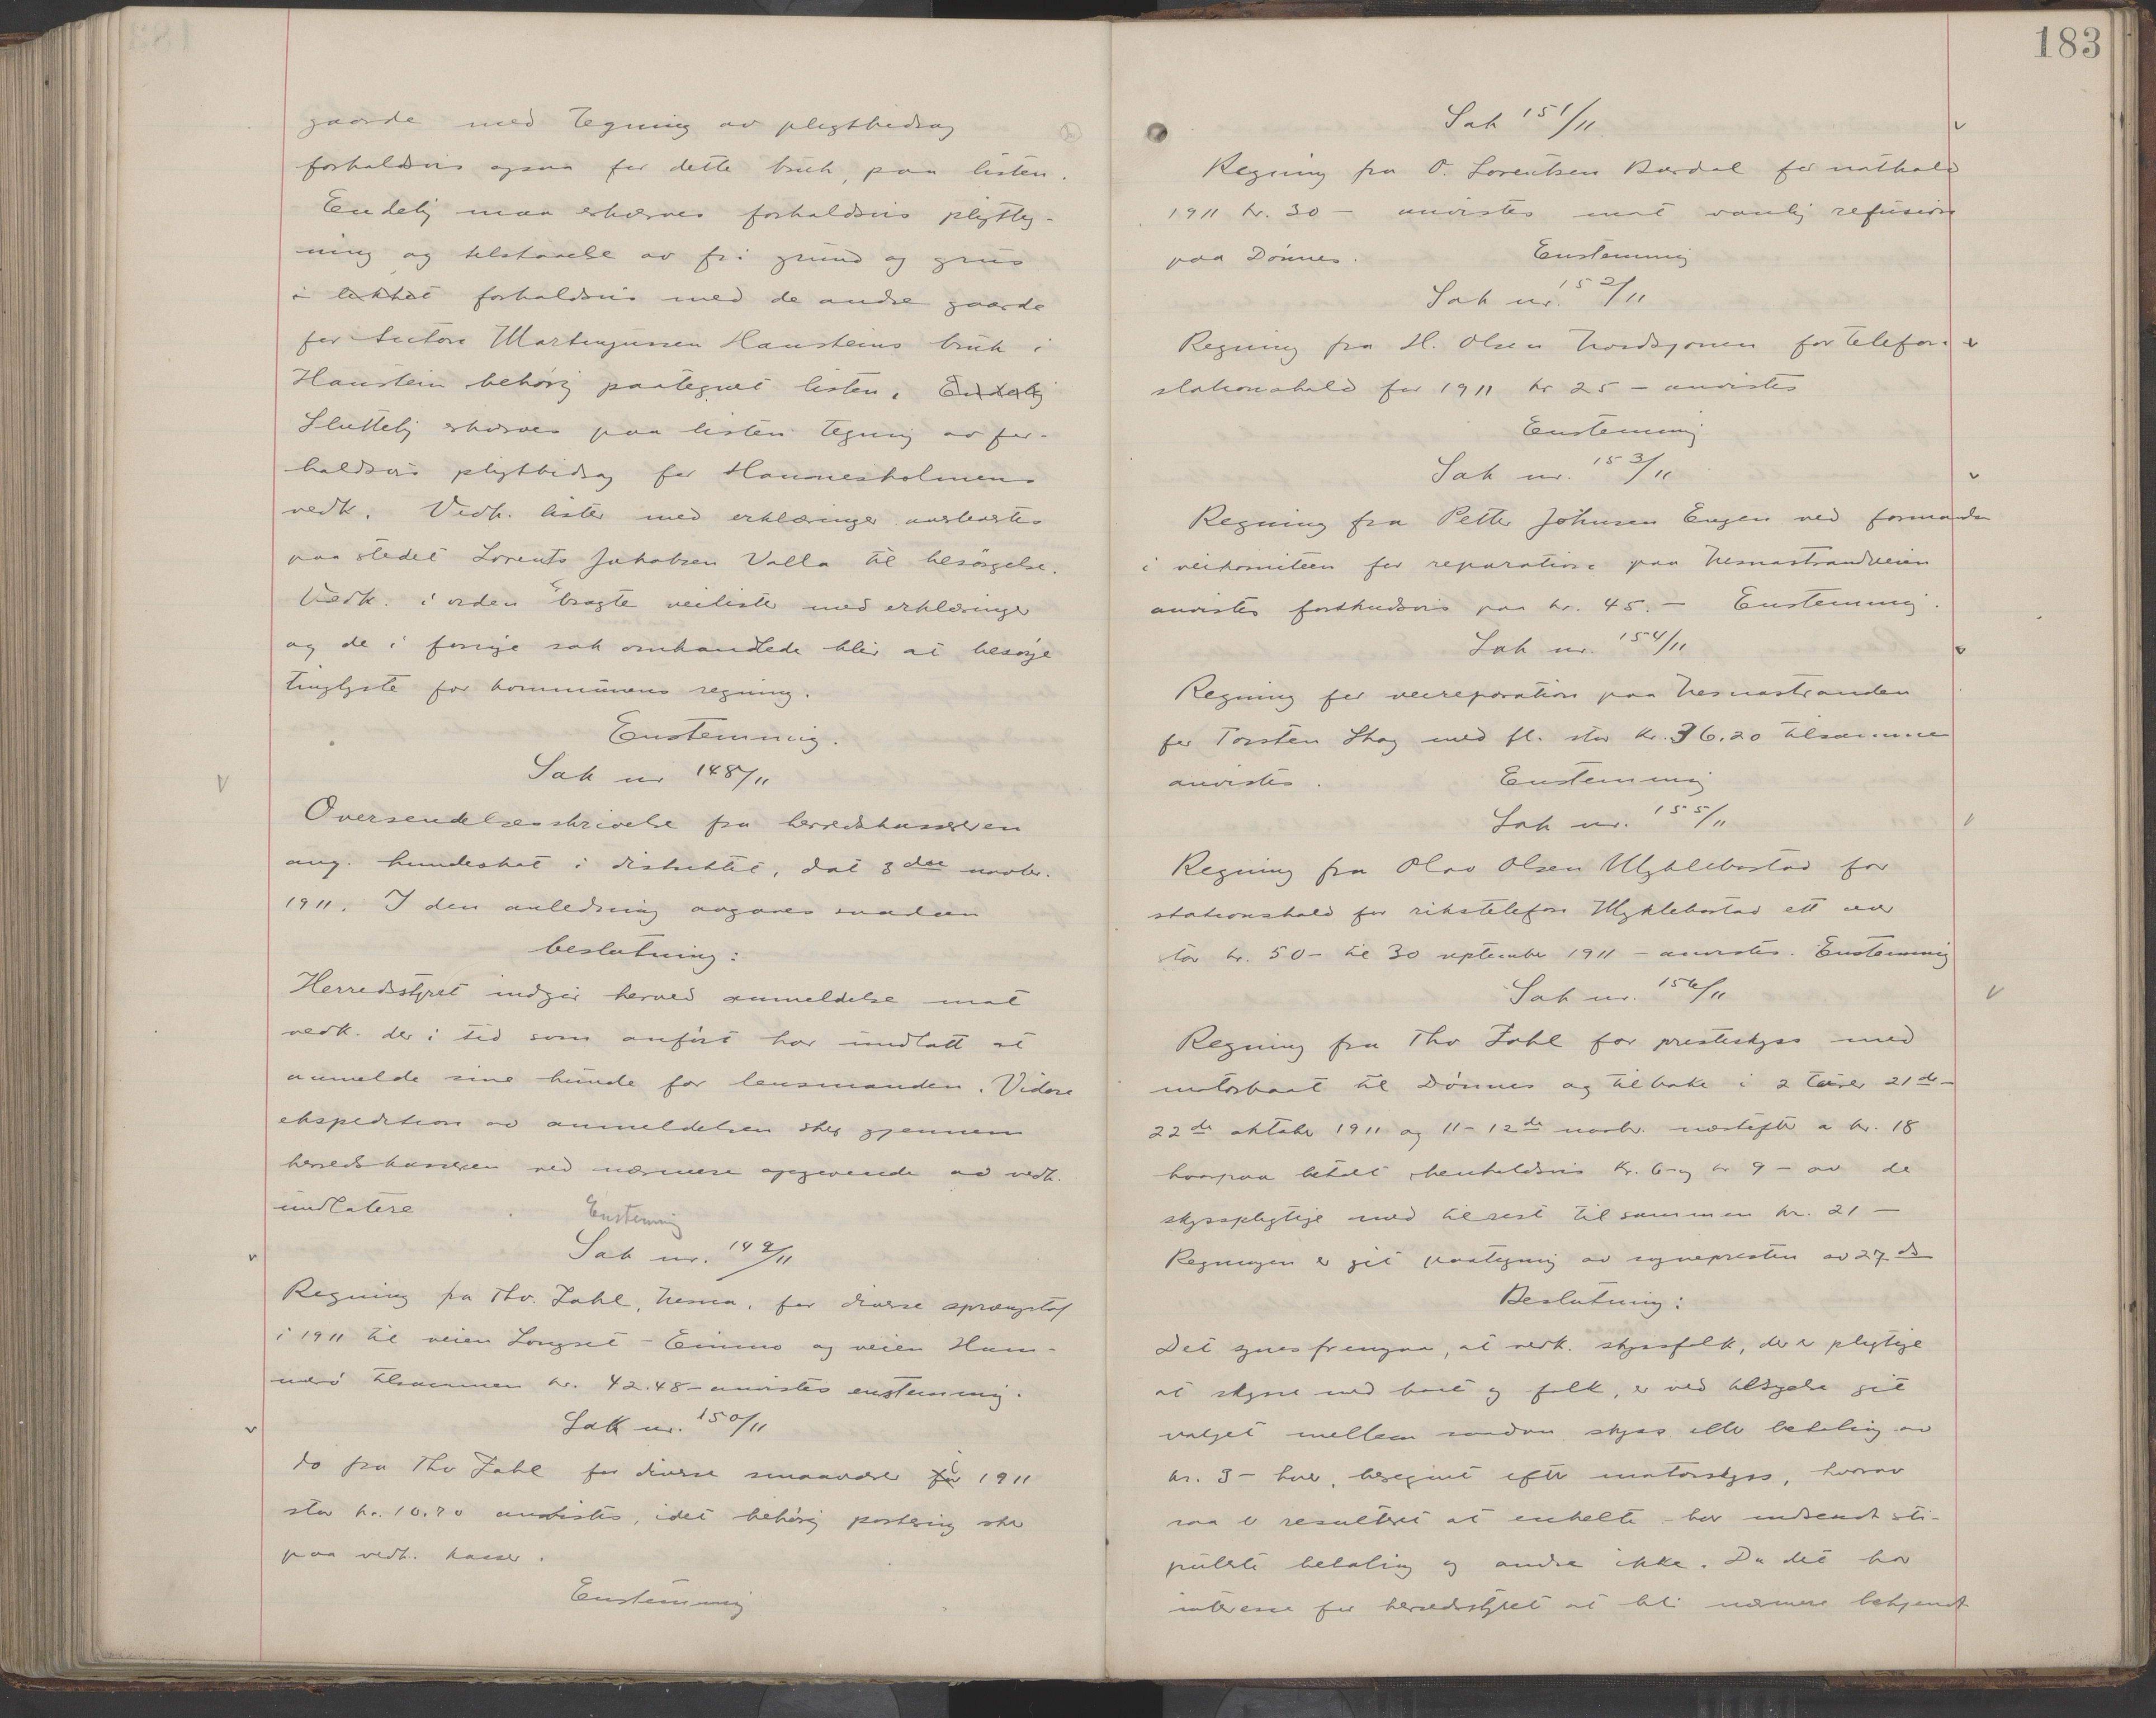 gaarde med tegning av pligtbidrag
forholdsvis ogsaa for dette bruk, paa listen.
Endelig maa erhverves forholdsvis pligtteg-
ning og tilstaaelse av fri grund og grus
i likhet forholdsvis med de andre gaarde
for Martinjussen Hansteins bruk i
Hanstein behørig paategnet listen. Endelig
Sluttelig erhverves paa listen tegning av for-
holdsvis pligtbidrag for Hannesholmens
vedk. Vedk. lister med erklæringer overleveres
paa stedet Lorents Jakobsen Valla til besørgelse.
Vedk. i orden bragte veilister med erklæringer
og de i forrige sak omhandlede blir at besørge
tinglyste for kommunens regning.
Enstemmig.
Sak nr 148/11
Oversendelsesskrivelse fra herredskasseren
ang. hundeskat i distriktet, dat 3die novbr.
1911. I den anledning avgaves saadan
beslutning:
Herredsstyret indgir herved anmeldelse mot
vedk. der i tid som anført har undlatt at
anmelde sine hunde for lensmanden. Videre
ekspedition av anmeldelsen sker gjennem
herredskasseren ved nærmere opgivende av vedk.
undlatere. Enstemmig
Sak nr. 149/11
Regning fra Thv. Zahl, Nesna, for diverse sprængstof
i 1911 til veien Longset - Einmo og veien Ham-
nerø tilsammen kr. 42.48 - anvistes enstemmig.
Sak nr. 150/11
do fra Thv Zahl for diverse smaavarer for i 1911
stor kr. 10.70 anvistes, idet behørig postering sker
paa vedk. kasser.
Enstemmig
183
Sak 151/11
Regning fra O. Lorentsen Bardal for nathold
1911 kr. 30 - anvistes mot vanlig refusion
paa Dønnes. Enstemmig
Sak nr. 152/11
Regning fra H. Olsen for telefon-
stationshold for 1911 kr 25 - anvistes
Enstemmig
Sak nr. 153/11
Regning fra Petter Johnsen Engen ved formanden
i veikomiteen for reparation paa Nesnastrandveien
anvistes forskudsvis paa kr. 45.- Enstemmig.
Sak nr. 154/11
Regning for veireparation paa Nesnastranden
for Torsten Skog med fl. stor kr. 36.20 tilsammen
anvistes. Enstemmig
Sak nr. 155/11
Regning fra Olav Olsen Myklebostad for
stationshold for rikstelefon Myklebostad ett aar
stor kr. 50 - til 30 september 1911 - anvistes. Enstemmig
Sak nr. 156/11
Regning fra Thv Zahl for presteskyss med
motorbaat til Dønnes og tilbake i 2 turer 21de-
22de oktober 1911 og 11-12te novbr. næstefter a kr. 18
hvorpaa betalt henholdsvis kr. 6 og kr 9 - av de
skysspligtige med tilrest tilsammen kr. 21 -
Regningen er git paategning av sognepresten av 27 ds
Beslutning:
Det synes fremgaa, at vedk. skyssfolk, der er pligtige
at skysse med baat og folk, er ved tilsigelse git
valget mellem saadan skyss eller betaling av
kr. 3 - hver, beregnet efter motorskyss, hvorav
saa er resulteret at enkelte har indsendt sti-
pulerte betaling og andre ikke. Da det har
interesse for herredsstyret at bli nærmere bekjendt